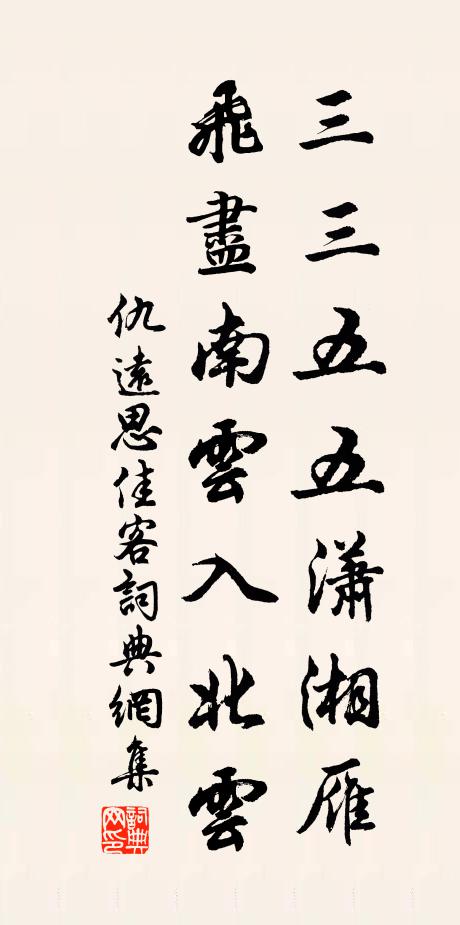 三三五五瀟湘雁
飛盡南雲入北雲
仇遠思佳客詞典網集
詞典網印